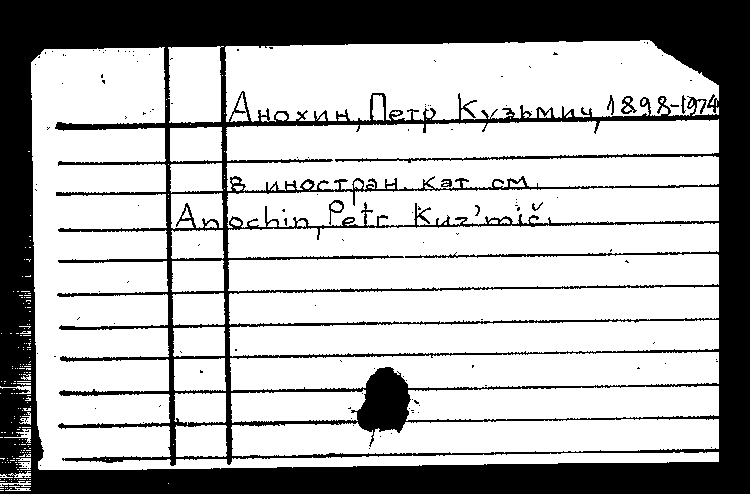 Анохин, Петр Кузьмич, 1898-1974
в иностран. кат. см.
Anochin, Petr Kuz'mič.